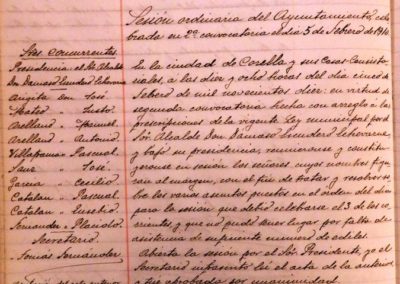 Sesión ordinaria del Ayuntamiento, cele
brada en 2ª convocatoria el dia 5 de Febrero de 1910
Sres concurrentes
Presidencia el Sr. Alcalde
Don Damaso
Angita José
Mateo Justo
Arellano Manuel
Arellano Antonio
Villafranca Pascual
Sanz José
Garcia Cecilio
Catalan Pascual
Catalan Eusebio
Fernandez Placido
Secretario
Tomas Fernandez
En la ciudad de Corella y sus Casas Consisto
riales, á las diez y ocho horas del dia cinco de
Febrero de mil novecientos diez: en virtud de
segunda convocatoria hecha con arreglo á las
prescripciones de la vigente Ley municipal por el
Sr. Alcalde Don Damaso
y bajo su presidencia, reunieronse y constitu-
yeronse en sesión los señores cuyos nombres figu
ran al margen, con el fin de tratar y resolver so
bre los varios asuntos puestos en el orden del dia
para la sesión que debió celebrarse el 3 de los co
rrientes, y que no pudo tener lugar por falta de
asistencia de suficiente número de ediles.
Abierta la sesión por el Sr. Presidente, yo el
Secretario infrascrito lei el acta de la anterior
y fue aprobada por unanimidad